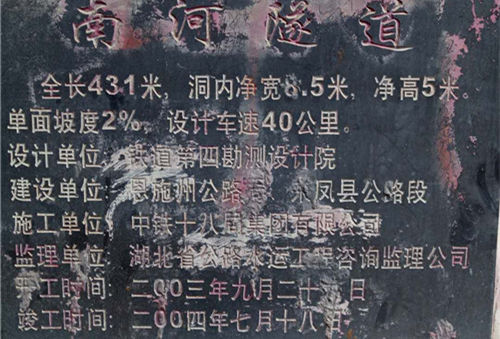 南河隧道
全长431米，洞内净宽8.5米，净高5米。
单面坡度2%，设计车速40公里。
设计单位：铁道第四勘测设计院
建设单位：恩施州公路 凤县公路段
施工单位：中铁十八局集团有限公司
监理单位：湖北省公路水运工程咨询监理公司
开工时间：二00三年九月二十 日
竣工时间：二00四年七月十八日